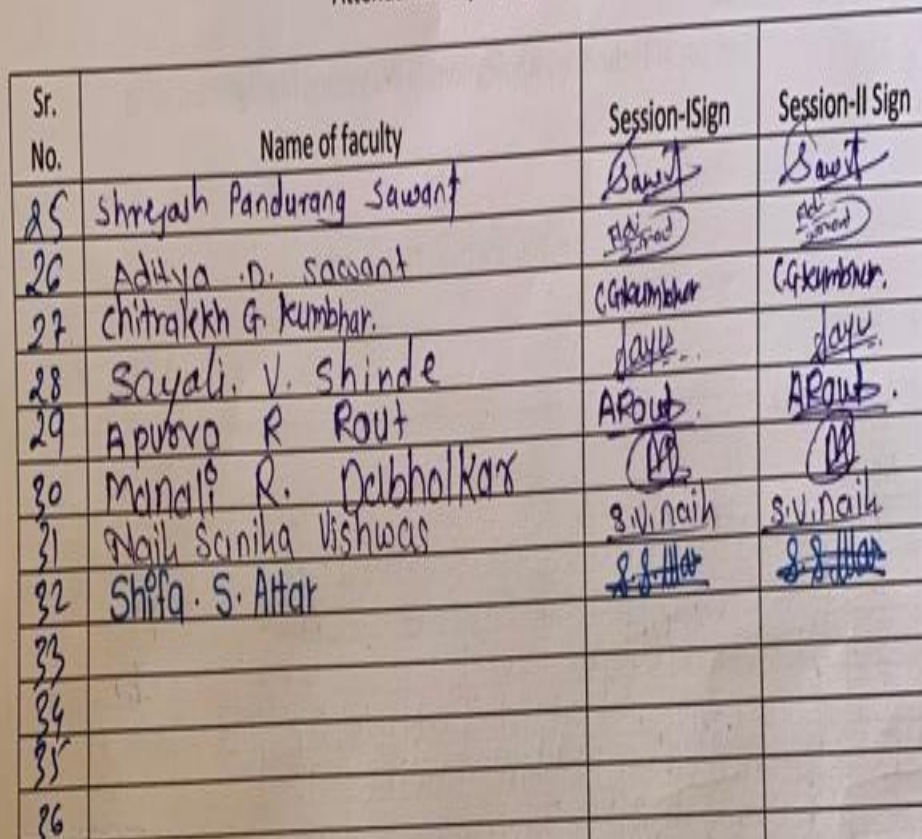 Sr. No. Name of faculty Session-ISign Session-II Sign
25 Shreyash Pandurang Sawant Sawnt Sawnt
26 Aditya .D. Sawant
27 Chitralekh G. Kumbhar. CGKumbhar CGKumbhar.
28 Sayali. V. Shinde
29 Apurva R Rout ARout. ARout.
30 Manali R. Dabholkar
31 Naik Sanika Vishwas S.V.naik S.V.naik
32 Shifa. S. Attar S.S.Attar S.S.Attar
33
34
35
36